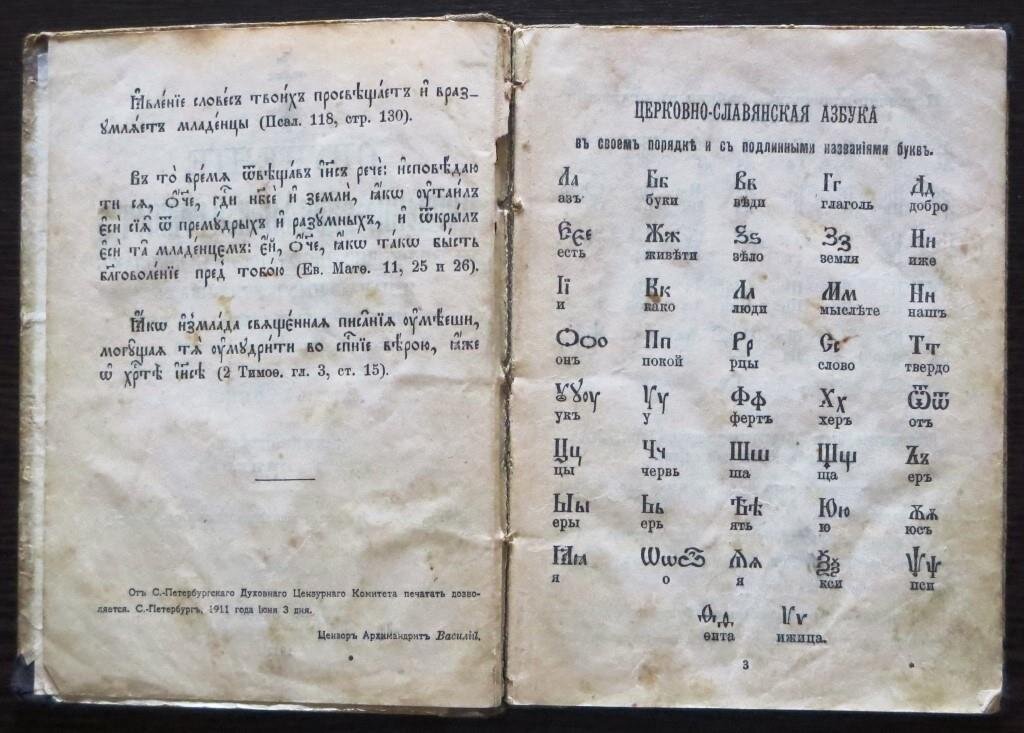 Ꙗ҆вле́нїе слове́съ твои́хъ просвѣща́етъ и҆ враз-
ꙋмлѧ́етъ младе́нцы (Псал. 118, стр. 130).
Въ то̀ вре́мѧ ѿвѣща́въ і҆и҃съ речѐ: и҆сповѣ́даю
ти сѧ, ѻ҆́ч҃е, гд҇и нб҃сѐ и҆ землѝ, ꙗ҆́кѡ ᲂу҆таи́лъ
є҆сѝ сїѧ̑ ѿ премꙋ́дрыхъ и҆ разꙋ́мныхъ, и҆ ѿкры́лъ
є҆сѝ та̑ младе́нцемъ: є҆́й, ѻ҆́ч҃е, ꙗ҆́кѡ та́кѡ бы́сть
бл҃говоле́нїе пред̾ тобо́ю (Ев. Матѳ. 11, 25 и 26).
Ꙗ҆́кѡ и҆з̾мла́да свѧще́ннаѧ писа҄нїѧ ᲂу҆мѣ́еши,
могꙋ́щаѧ тѧ̀ ᲂу҆мꙋдри́ти во сп҃се́нїе вѣ́рою, ꙗ҆́же
ѡ҆ хрⷭ҇тѣ̀ і҆и҃сѣ (2 Тимоѳ. гл. 3, ст. 15).
Отъ С.-Петербургскаго Духовнаго Цензурнаго Комитета печатать дозво-
ляется. С.-Петербургъ, 1911 года Іюня 3 дня.
Цензоръ Архимандритъ Василій.
ЦЕРКОВНО-СЛАВЯНСКАЯ АЗБУКА
въ своемъ порядкѣ и съ подлинными названіями буквъ.
Аа Бб Вв Гг Дд
азъ буки вѣди глаголь добро
Єєе Жж Ѕѕ Зз Ии
есть живѣти зѣло земля иже
Її Кк Лл Мм Нн
и како люди мыслѣте нашъ
Ѻѻо Пп Рр Сс Тт
онъ покой рцы слово твердо
Ꙋꙋᲂу Ѵѵ Фф Хх Ѿѿ
укъ у фертъ херъ отъ
Цц Чч Шш Щщ Ъъ
цы червь ша ща еръ
Ыы Ьь Ѣѣ Юю Ѫѫ
еры ерь ять ю юсъ
Ꙗꙗ Ѡѡѽ Ѧѧ Ѯѯ Ѱѱ
я о я кси пси
Ѳѳ Ѵѵ
ѳита ижица.
3